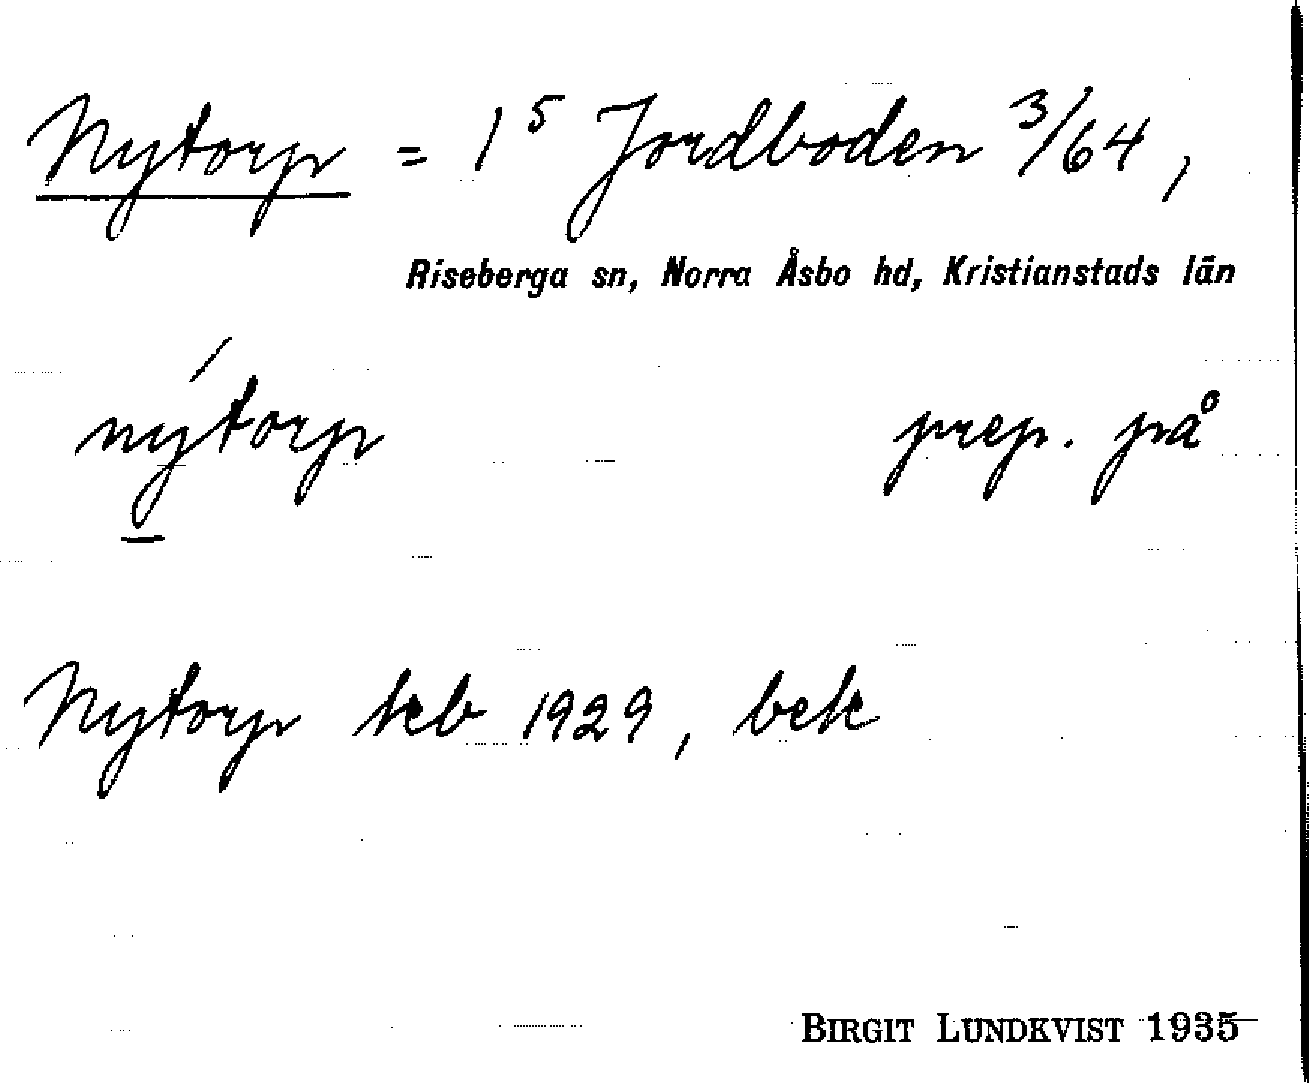 Nytorp = 1⁵ Jordboden 3/64,
Riseberga sn, Norra Åsbo hd, Kristianstads län
nýtorp prep. på
Nytorp kb 1929, bek
BIRGIT LUNDKVIST 1935